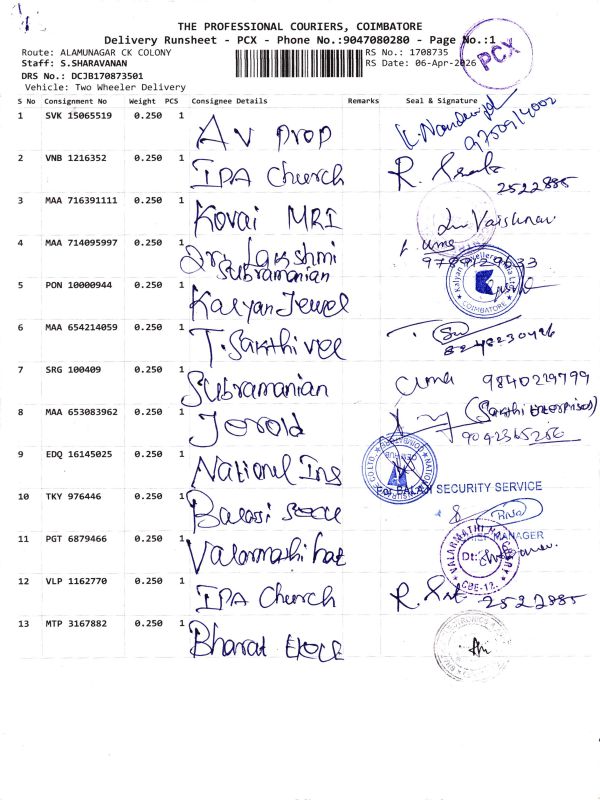 THE PROFESSIONAL COURIERS, COIMBATORE
Delivery Runsheet - PCX - Phone No.:9047080280 - Page No.:1
PCX
Route: ALAMUNAGAR CK COLONY
RS No.: 1708735
Staff: S.SHARAVANAN
RS Date: 06-Apr-2026
DRS No.: DCJB170873501
Vehicle: Two Wheeler Delivery
S No Consignment No Weight PCS Consignee Details Remarks Seal & Signature
1 SVK 15065519 0.250 1 AV prop
2 VNB 1216352 0.250 1 IPA Church R. 2522885
3 MAA 716391111 0.250 1 Kovai MRI Vaishnav
4 MAA 714095997 0.250 1 Dr. Lakshmi Subramanian
5 PON 10000944 0.250 1 Kalyan Jewel COIMBATORE
6 MAA 654214059 0.250 1 T. Sakthivel
7 SRG 100409 0.250 1 Subramanian Uma 9840229799
8 MAA 653083962 0.250 1 Jerold (Sakthi Enterprises)
9042365256
9 EDQ 16145025 0.250 1 National Ins
For BALAJI SECURITY SERVICE
10 TKY 976446 0.250 1 Balaji
MANAGER
11 PGT 6879466 0.250 1 Valarmathi VALARMATHI CBE-12.
12 VLP 1162770 0.250 1 IPA Church R. 2522885
13 MTP 3167882 0.250 1 Bharat